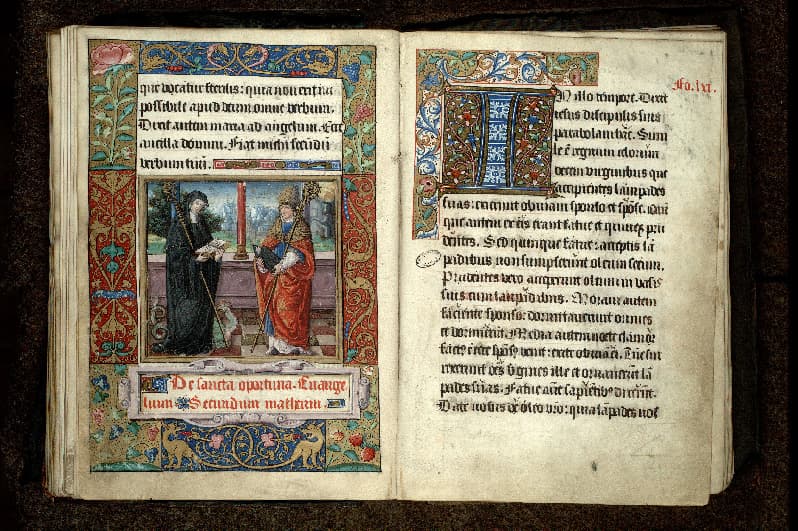 que vocatur sterilis: quia non erit in
possibile apud deum omne verbum.
Dixit autem maria ad angelum. Ecce
ancilla domini. Fiat michi secundum
verbum tuum.
De sancta oportuna. Euange
lium Secundum matheum
Fo. lxi.
IN illo tempore. Dixit
iesus discipulis suis
parabolam hāc. Simi
le ē regnum celorum
decem virginibus que
accipientes lampades
suas: exierunt obuiam sponso et spōse.
que autem ex eis erant fatue et quinqz pru
dentes. Sed quinque fatue: acceptis lā
padibus non sumpserunt oleum secum.
Prudentes vero acceperunt oleum in vasis
suis cum lampadibus. Moram autem
faciente sponso: dormitauerunt omnes
et dormierūt. Media autem nocte clamor
factꝰ ē: ecce spōsꝰ venit: exite obuiā ei. Tūc sur
rexerunt oēs virgines ille et ornauerūt lā
pades suas. Fatue autē sapiētibꝰ dixerūt.
Date nobis de oleo vr̄o: quia lāpades nos